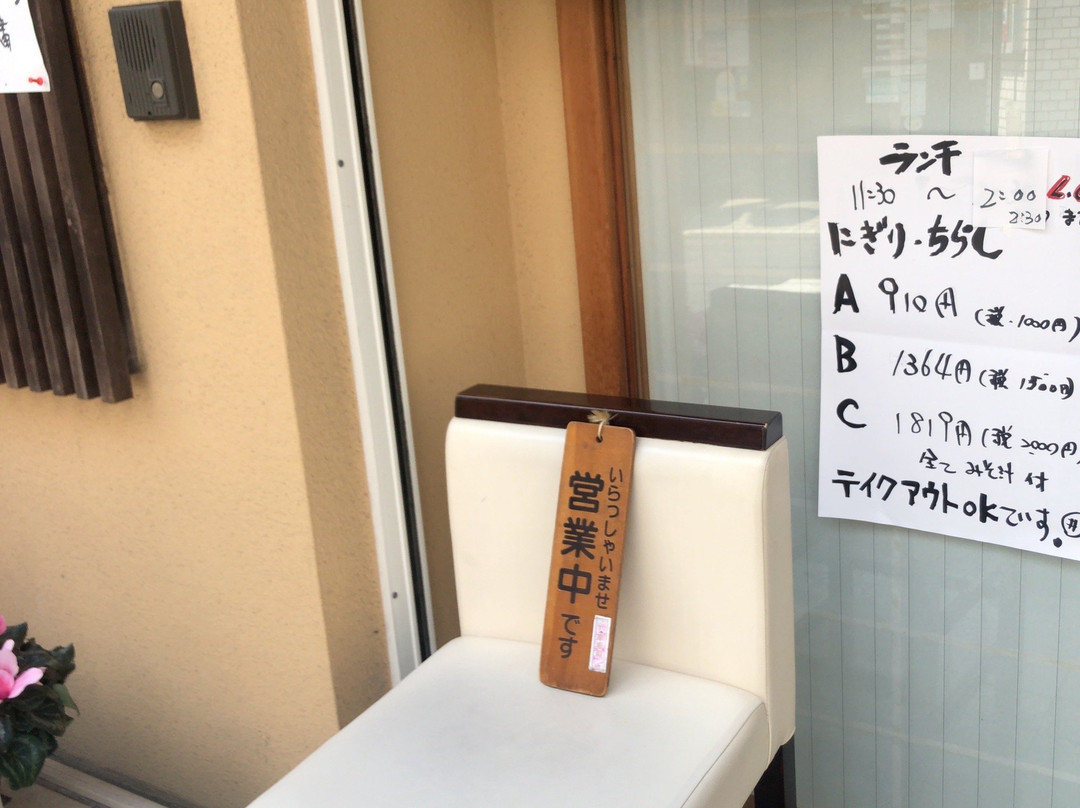 いらっしゃいませ
営業中です
ランチ
11:30 〜 2:00
2:30)
にぎり・ちらし
A 910円 (税・1000円)
B 1364円 (税 1500円)
C 1819円 (税 2000円)
全て みそ汁 付
テイクアウトokです。